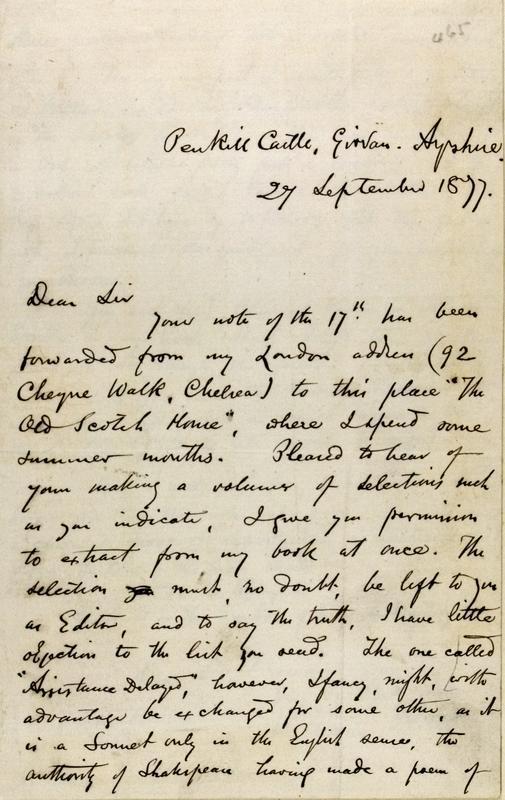 465
Penkill Castle, Girvan. Ayrshire.
27 September 1877.
Dear Sir
Your note of the 17th. has been
forwarded from my London address (92
Cheyne Walk, Chelsea) to this place "The
Old Scotch Home", where I spend some
summer months. Pleased to hear of
your making a volume of selections such
as you indicate, I give you permission
to extract from my book at once. The
selection must, no doubt, be left to you
as Editor, and to say the truth, I have little
objection to the list you send. The one called
"Assistance Delayed," however, I fancy, might, with
advantage be exchanged for some other, as it
is a Sonnet only in the English sense, the
authority of Shakspeare having made a poem of